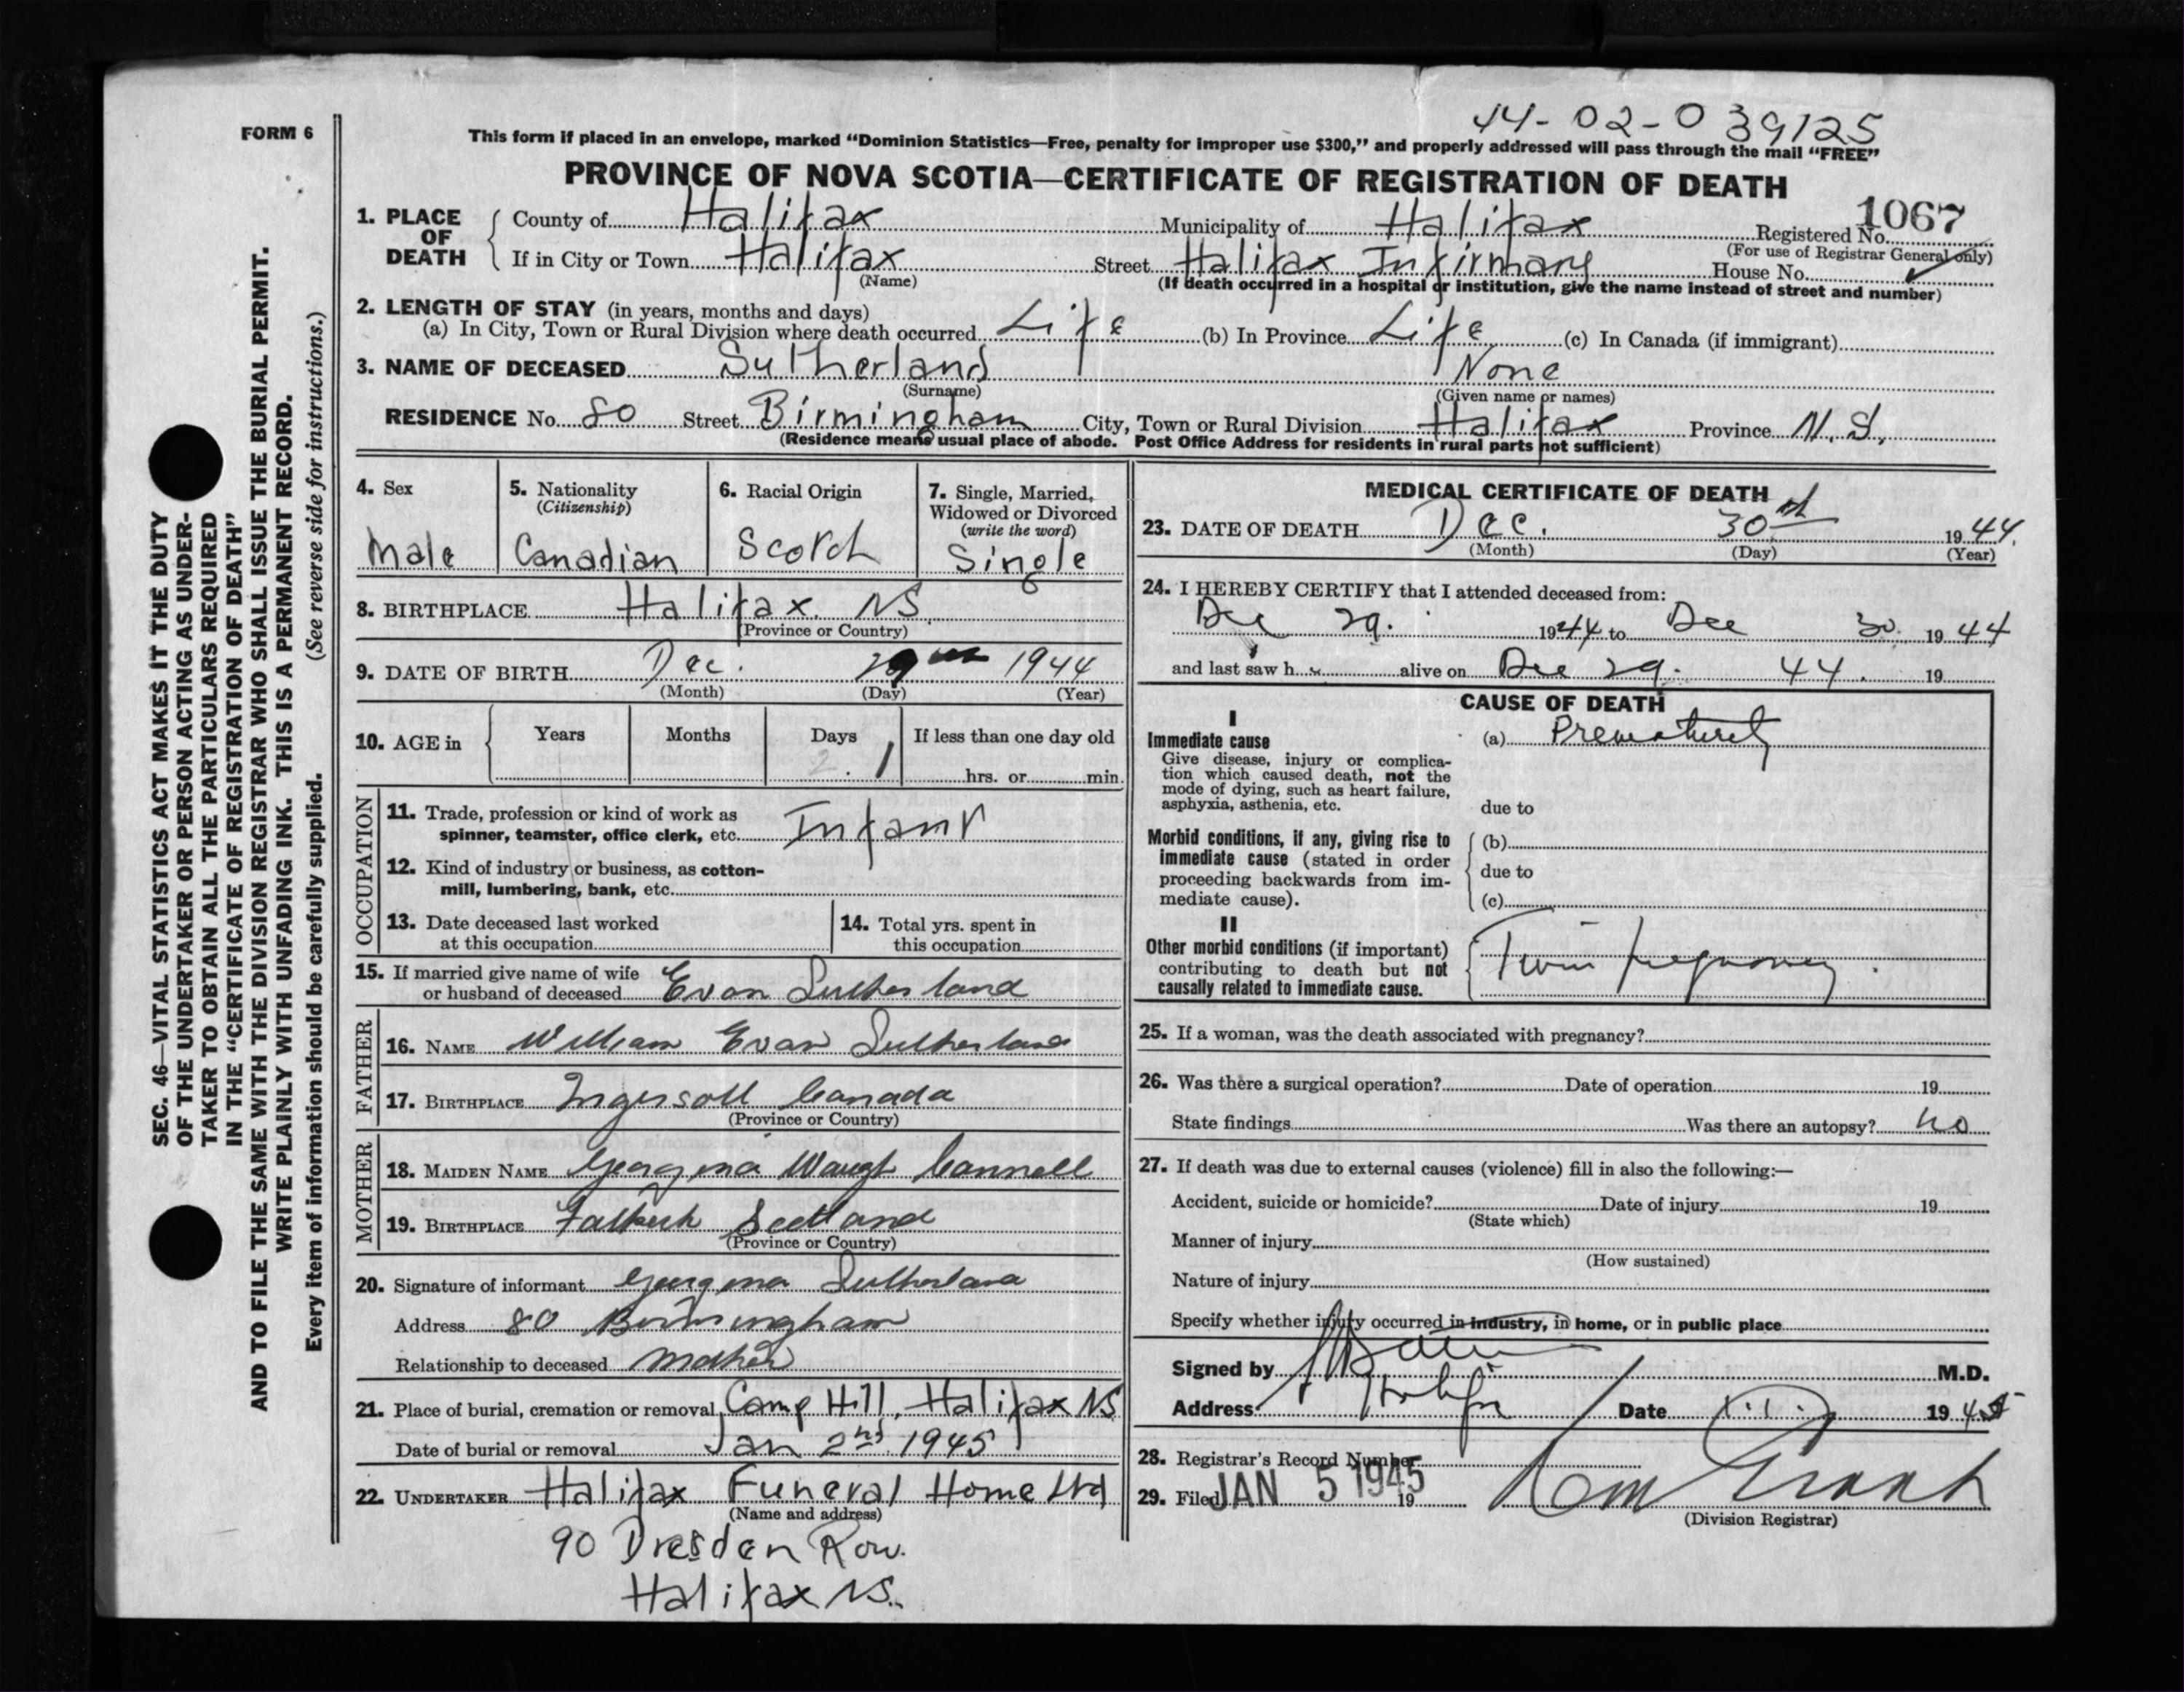 44-02-039125
FORM 6
This form if placed in an envelope, marked "Dominion Statistics—Free, penalty for improper use $300," and properly addressed will pass through the mail "FREE"
PROVINCE OF NOVA SCOTIA—CERTIFICATE OF REGISTRATION OF DEATH
1067
1. PLACE OF DEATH County of Halifax Municipality of Halifax Registered No.
(For use of Registrar General only)
If in City or Town Halifax Street Halifax Infirmary House No.
(Name) (If death occurred in a hospital or institution, give the name instead of street and number)
2. LENGTH OF STAY (in years, months and days)
(a) In City, Town or Rural Division where death occurred Life (b) In Province Life (c) In Canada (if immigrant)
3. NAME OF DECEASED Sutherland None
(Surname) (Given name or names)
RESIDENCE No. 80 Street Birmingham City, Town or Rural Division Halifax Province N.S.
(Residence means usual place of abode. Post Office Address for residents in rural parts not sufficient)
4. Sex
Male
5. Nationality
(Citizenship)
Canadian
6. Racial Origin
Scotch
7. Single, Married,
Widowed or Divorced
(write the word)
Single
8. BIRTHPLACE Halifax. NS.
(Province or Country)
9. DATE OF BIRTH Dec. 29 1944
(Month) (Day) (Year)
10. AGE in Years Months Days If less than one day old
2. 1 hrs. or min.
OCCUPATION
11. Trade, profession or kind of work as
spinner, teamster, office clerk, etc. Infant
12. Kind of industry or business, as cotton-
mill, lumbering, bank, etc.
13. Date deceased last worked
at this occupation
14. Total yrs. spent in
this occupation
15. If married give name of wife
or husband of deceased Evan Sutherland
FATHER
16. NAME William Evan Sutherland
17. BIRTHPLACE Ingersoll Canada
(Province or Country)
MOTHER
18. MAIDEN NAME Georgina Waugh Cannell
19. BIRTHPLACE Falkirk Scotland
(Province or Country)
20. Signature of informant Georgina Sutherland
Address 80 Birmingham
Relationship to deceased Mother
21. Place of burial, cremation or removal Camp Hill, Halifax NS
Date of burial or removal Jan 2nd 1945
22. UNDERTAKER Halifax Funeral Home Ltd
(Name and address)
90 Dresden Row.
Halifax NS.
MEDICAL CERTIFICATE OF DEATH
23. DATE OF DEATH Dec. 30th 1944.
(Month) (Day) (Year)
24. I HEREBY CERTIFY that I attended deceased from:
Dec 29. 1944 to Dec 30. 1944
and last saw h alive on Dec 29. 44. 19
CAUSE OF DEATH
I
Immediate cause
Give disease, injury or complica-
tion which caused death, not the
mode of dying, such as heart failure,
asphyxia, asthenia, etc.
(a) Prematurity
due to
Morbid conditions, if any, giving rise to
immediate cause (stated in order
proceeding backwards from im-
mediate cause).
(b)
due to
(c)
II
Other morbid conditions (if important)
contributing to death but not
causally related to immediate cause.
Twin pregnancy.
25. If a woman, was the death associated with pregnancy?
26. Was there a surgical operation? Date of operation 19
State findings Was there an autopsy? no
27. If death was due to external causes (violence) fill in also the following:—
Accident, suicide or homicide? Date of injury 19
(State which)
Manner of injury
(How sustained)
Nature of injury
Specify whether injury occurred in industry, in home, or in public place
Signed by M.D.
Address Halifax Date 1.1. 1945
28. Registrar's Record Number
29. Filed JAN 5 1945 19
(Division Registrar)
SEC. 46—VITAL STATISTICS ACT MAKES IT THE DUTY
OF THE UNDERTAKER OR PERSON ACTING AS UNDER-
TAKER TO OBTAIN ALL THE PARTICULARS REQUIRED
IN THE "CERTIFICATE OF REGISTRATION OF DEATH"
AND TO FILE THE SAME WITH THE DIVISION REGISTRAR WHO SHALL ISSUE THE BURIAL PERMIT.
WRITE PLAINLY WITH UNFADING INK. THIS IS A PERMANENT RECORD.
Every item of information should be carefully supplied. (See reverse side for instructions.)